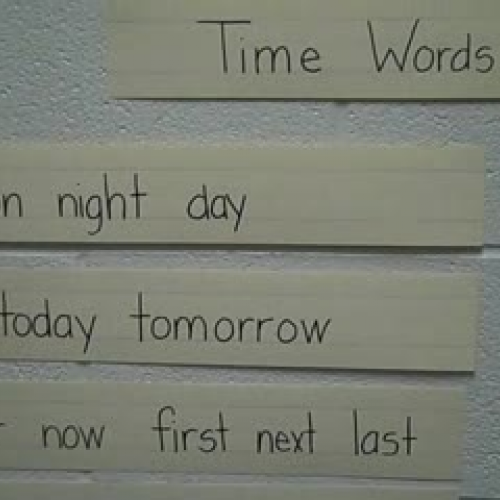 Time Words
night day
today tomorrow
now first next last